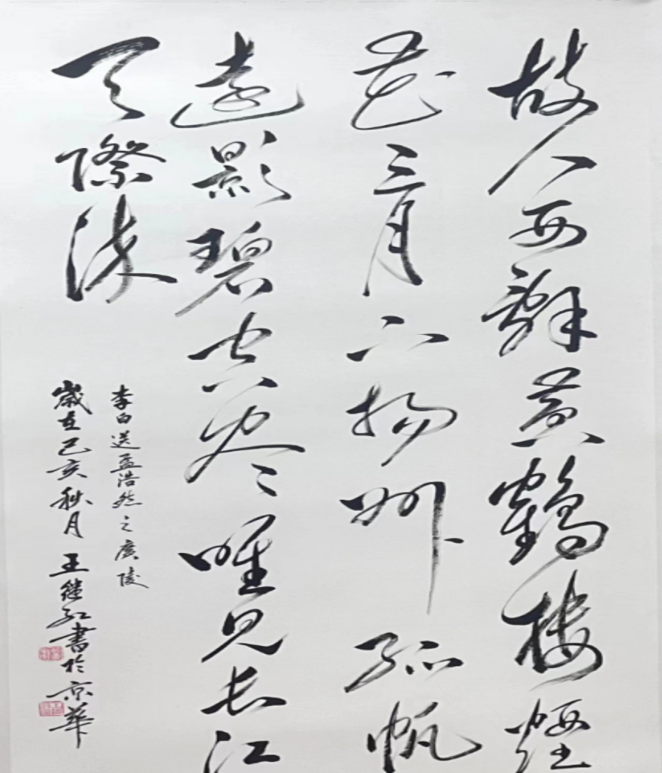 故人西辭黄鶴樓煙
花三月下揚州孤帆
遠影碧空盡唯見長江
天際流
李白送孟浩然之廣陵
歲在己亥秋月王繼紅書於京華